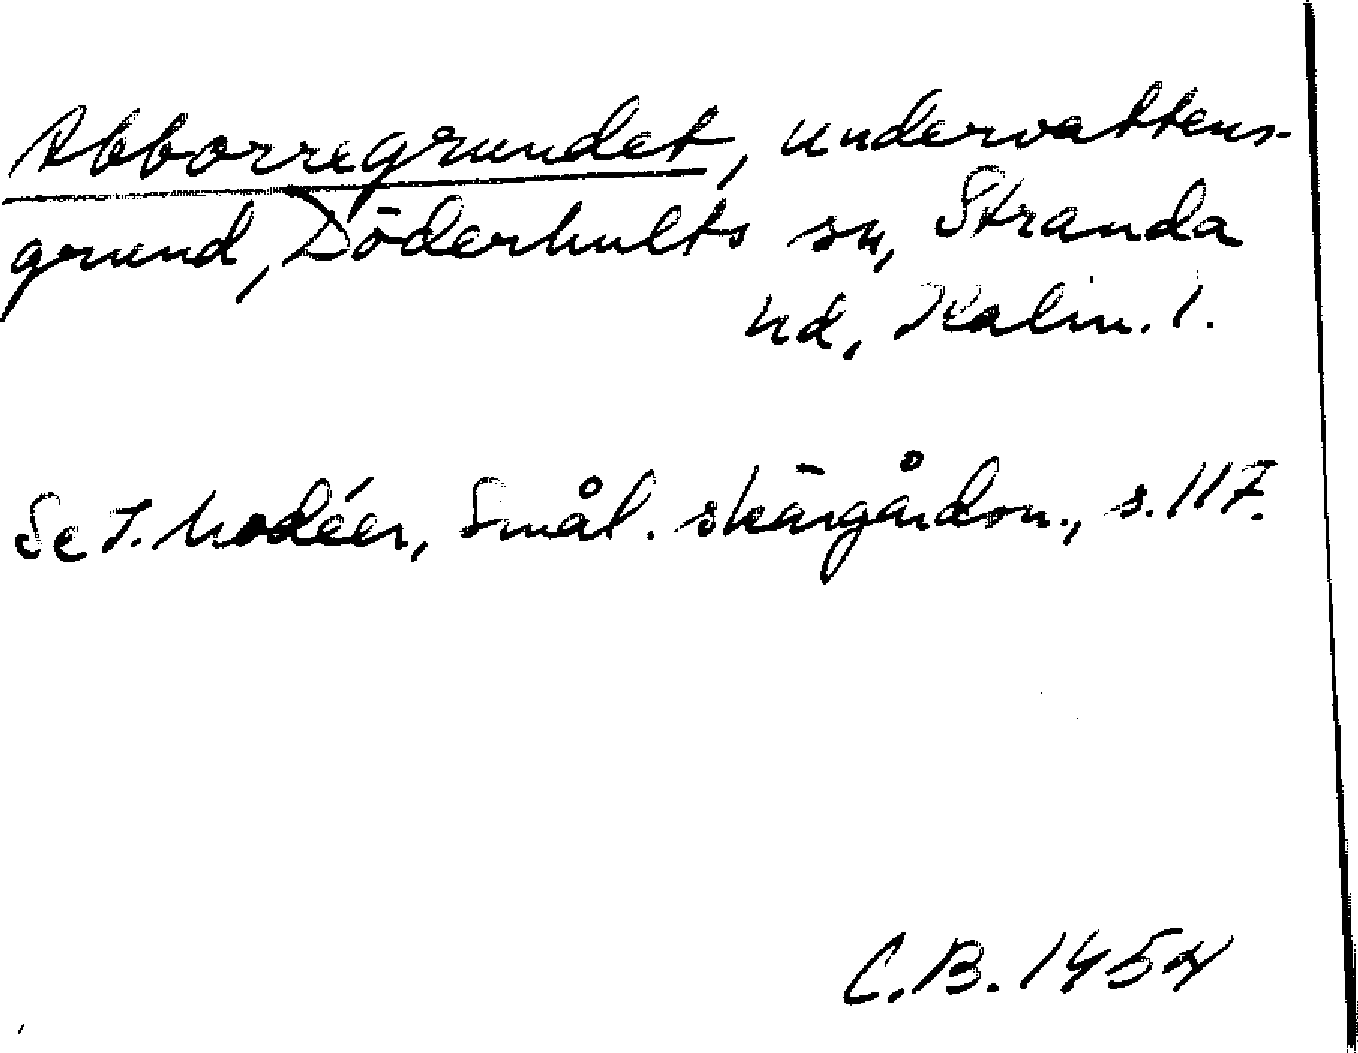 Abborregrundet, undervattens-
grund, Döderhults sn, Stranda
hd, Kalm. l.
Se I. Modéer, Smål. skärgårdsn., s. 117.
C.B. 1954